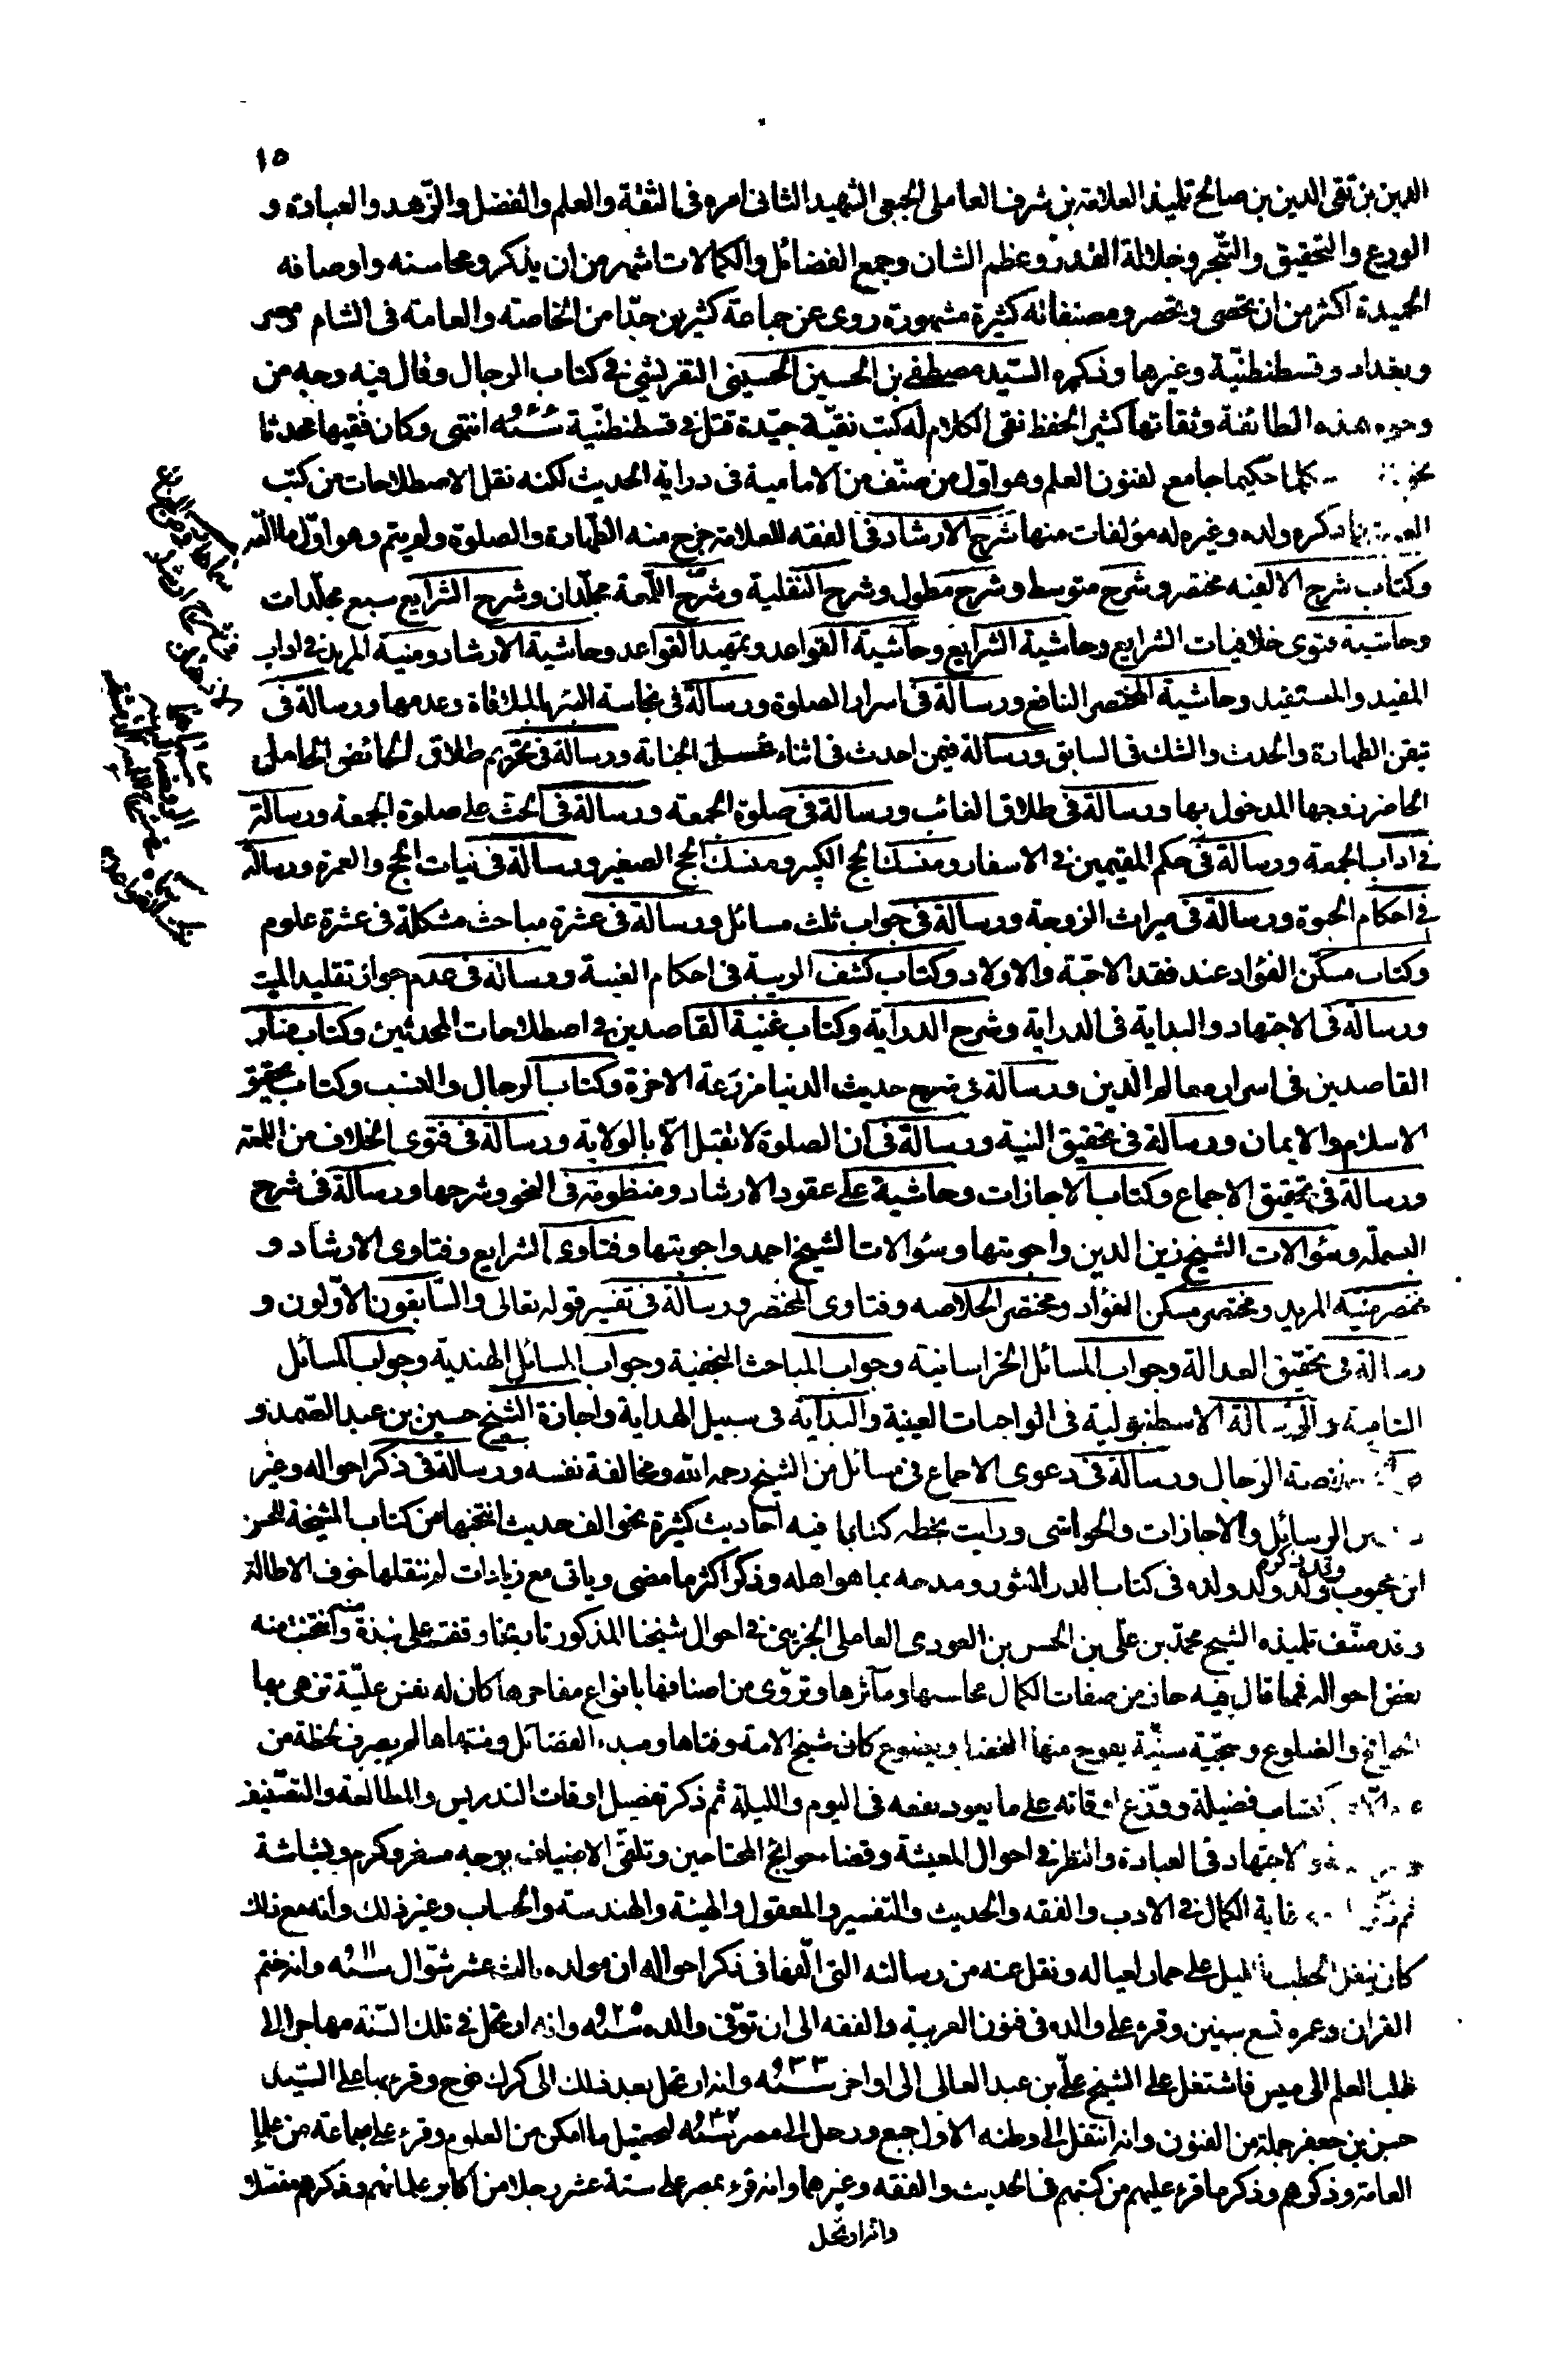 ١٥
الدين بن تقى الدين بن صالح تلميذ العلامة بن شرف العاملى الجبعى الشهيد الثانى امره فى الثقة والعلم والفضل والزّهد والعبادة و
الورع والتحقيق والتبحر وجلالة القدر وعظم الشان وجمع الفضائل والكمالات اشهر من ان يذكر ومحاسنه واوصافه
الحميدة اكثر من ان تحصى وتحصر ومصنفاته كثيرة مشهورة روى عن جماعة كثيرين جدّا من الخاصة والعامة فى الشام ومصر
وبغداد وقسطنطنيّة وغيرها وذكره السّيد مصطفى بن الحسين الحسينى التفريشى فى كتاب الرجال وقال فيه وجه من
وجوه هذه الطائفة وثقاتها كثير الحفظ نقى الكلام له كتب نقيّة جيّدة قتل فى قسطنطنّية انتهى وكان فقيها محدثا
حكيما جامع لفنون العلم وهو اوّل من صنّف من الامامية فى دراية الحديث لكنه نقل الاصطلاحات من كتب
ذكره ولده وغيره له مؤلفات منها شرح الارشاد فى الفقه للعلامة خرج منه الطّهارة والصلوة ولم يتم وهو اوّل ما الّفه
وكتاب شرح الالفيه مختصر وشرح متوسط وشرح مطول وشرح النفلية وشرح اللّمعة مجلّدان وشرح الشرايع سبع مجلّدات
وحاشية فتوى خلافيات الشرايع وحاشية الشرايع وحاشية القواعد وتمهيد القواعد وحاشية الارشاد ومنية المريد فى اداب
المفيد والمستفيد وحاشية المختصر النافع ورسالة فى اسرار الصلوة ورسالة فى نجاسة البئر بالملاقاة وعدمها ورسالة فى
تيقن الطهارة والحدث والشك فى السابق ورسالة فيمن احدث فى اثناء غسل الجنابة ورسالة فى تحريم طلاق الحائض الحامل
الحاضر زوجها المدخول بها ورسالة فى طلاق الغائب ورسالة فى صلوة الجمعة ورسالة فى الحث على صلوة الجمعة ورسالة
فى اداب الجمعة ورسالة فى حكم المقيمين فى الاسفار ومنسك الحج الكبير ومنسك الحج الصغير ورسالة فى نيات الحج والعمرة ورسالة
فى احكام الحبوة ورسالة فى ميراث الزوجة ورسالة فى جواب ثلث مسائل ورسالة فى عشرة مباحث مشكلة فى عشرة علوم
وكتاب مسكّن الفؤاد عند فقد الاحبّة والاولاد وكتاب كشف الريبة فى احكام الغيبة ورسالة فى عدم جواز تقليد الميت
ورسالة فى الاجتهاد والبداية فى الدراية وشرح الدراية وكتاب غنية القاصدين فى اصطلاحات المحدثين وكتاب منار
القاصدين فى اسرار معالم الدين ورسالة فى شرح حديث الدنيا مزرعة الاخرة وكتاب الرجال والنسب وكتاب تحقيق
الاسلام والايمان ورسالة فى تحقيق النية ورسالة فى ان الصلوة لا تقبل الّا بالولاية ورسالة فى فتوى الخلاف من اللمعة
ورسالة فى تحقيق الاجماع وكتاب الاجازات وحاشية على عقود الارشاد ومنظومة فى النحو وشرحها ورسالة فى شرح
البسملة وسؤالات الشيخ زين الدين واجوبتها وسؤالات الشيخ احمد واجوبتها وفتاوى الشرايع وفتاوى الارشاد و
مختصر منية المريد ومختصر مسكن الفؤاد ومختصر الخلاصه وفتاوى المختصر ورسالة فى تفسير قوله تعالى والسّابقون الاوّلون و
رسالة فى تحقيق العدالة وجواب المسائل الخراسانية وجواب المباحث النجفية وجواب المسائل الهندية وجواب المسائل
الشامية والرسالة الاسطنبولية فى الواجبات العينية والبداية فى سبيل الهداية واجازة الشيخ حسين بن عبد الصّمد و
الرّجال ورسالة فى دعوى الاجماع فى مسائل من الشيخ رحمه الله ومخالفة نفسه ورسالة فى ذكر احواله وغير
الرسائل والاجازات والحواشى ورايت بخطه كتابا فيه احاديث كثيرة نحو الف حديث انتخبها من كتاب المشيخة للحسن
ابن محبوب وقد ذكره ولد ولد ولده فى كتاب الدر المنثور ومدحه بما هو اهله وذكر اكثر ما مضى وياتى مع زيادات لم ننقلها خوف الاطالة
وقد صنّف تلميذه الشيخ محمّد بن علّى بن الحسن بن العودى العاملى الجزينى فى احوال شيخنا المذكور تاريخا وقفت على نبذة منه وانتخبت منه
بعض احواله فمما قال فيه حاز من صفات الكمال محاسنها ومآثرها وتروّى من اصنافها بانواع مفاخرها كان له نفس عليّة تزهى بها
الجوانح والضلوع وسجيّة سنيّة يفوح منها الفضل ويضوع كان شيخ الامة وفتاها ومبدء الفضائل ومنتهاها لم يصرف لحظة من
اكتساب فضيلة ووزّع اوقاته على ما يعود نفعه فى اليوم والليلة ثم ذكر تفصيل اوقات التدريس والمطالعة والتصنيف
والاجتهاد فى العبادة والنظر فى احوال المعيشة وقضاء حوائج المحتاجين وتلقّى الاضياف بوجه مسفر وكرم وبشاشة
غاية الكمال فى الادب والفقه والحديث والتفسير والمعقول والهيئة والهندسة والحساب وغير ذلك وانه مع ذلك
كان ينقل الحطب بالليل على حمار لعياله ونقل عنه من رسالته التى الّفها فى ذكر احواله ان مولده ثالث عشر شوّال سنة ٩١١ وانه ختم
القران وعمره تسع سنين وقرء على والده فى فنون العربية والفقه الى ان توفّى والده سنة ٩٢٥ وانه ارتحل فى تلك السّنة مهاجرا الى
طلب العلم الى ميس فاشتغل على الشيخ علىّ بن عبد العالى الى اواخر سنة ٩٣٣ وانه ارتحل بعد ذلك الى كرك نوح وقرء بها على السّيد
حسن بن جعفر جملة من الفنون وانه انتقل الى وطنه الاوّل جبع ورحل الى مصر سنة ٩٤٢ لتحصيل ما امكن من العلوم وقرء على جماعة من علماء
العامة وذكرهم وذكر ما قرء عليهم من كتبهم فى الحديث والفقه وغيرهما وانه قرء بمصر على ستة عشر رجلا من اكابر علمائهم وذكرهم مفصّلا
وانه ارتحل